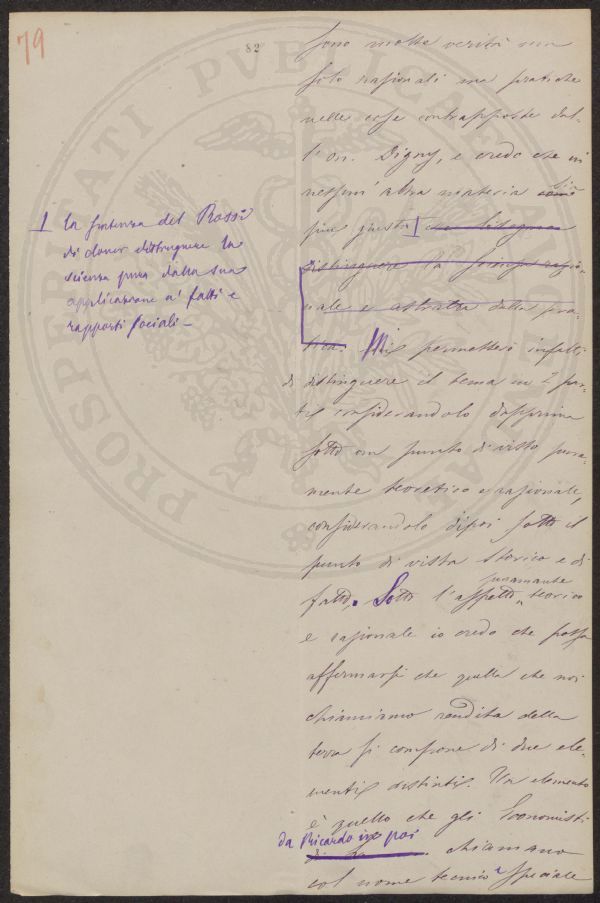 79
82
PROSPERITATI PVBLICAE
sono molte verità non
solo razionali ma pratiche
nelle cose contrapposte dal-
l'on. Digny, e credo che in
nessun' altra materia sia
più giusta 1 che bisogna
distinguere la scienza razio-
nale e astratta dalla pra-
tica. Mi permetterò infatti
di distinguere il tema in 2 par-
ti considerandolo dapprima
sotto un punto di vista pura-
mente teoretico e razionale,
considerandolo dipoi sotto il
punto di vista storico e di
fatto. Sotto l'aspetto puramente teorico
e razionale io credo che possa
affermarsi che quella che noi
chiamiamo rendita della
terra si compone di due ele-
menti distinti. Un elemento
è quello che gli Economisti
da Ricardo in poi chiamano
col nome tecnico e speciale
1 la sentenza del Rossi
di dover distinguere la
scienza pura dalla sua
applicazione a' fatti e
rapporti sociali —